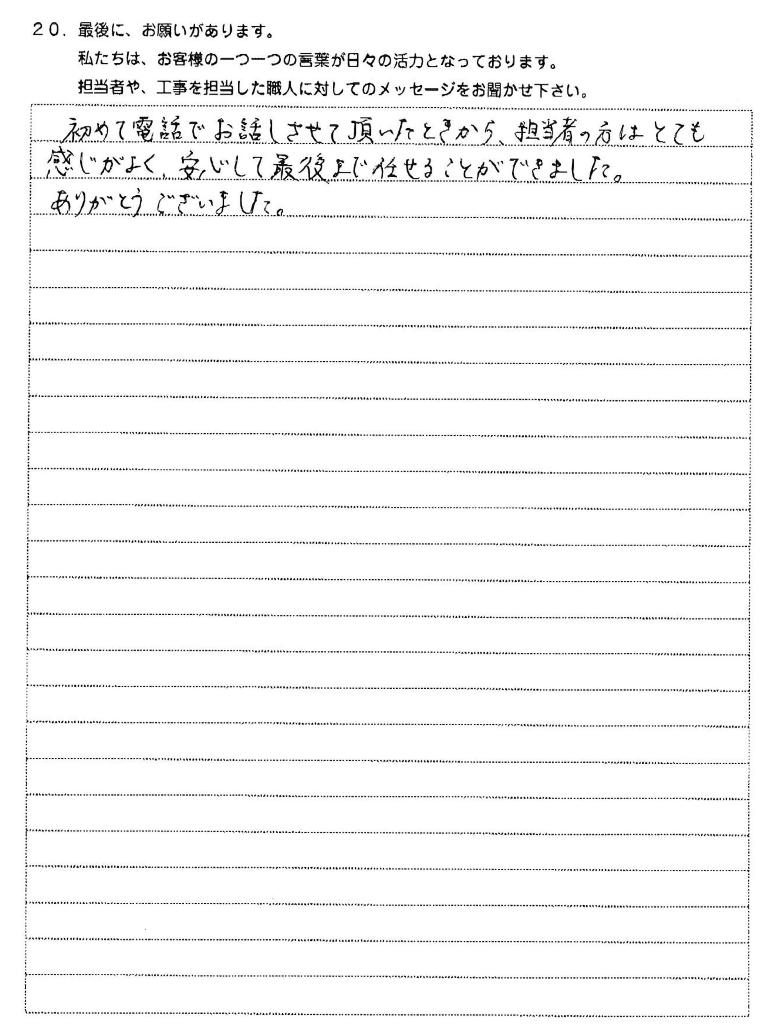 20. 最後に、お願いがあります。
私たちは、お客様の一つ一つの言葉が日々の活力となっております。
担当者や、工事を担当した職人に対してのメッセージをお聞かせ下さい。
初めて電話でお話しさせて頂いたときから、担当者の方はとても
感じがよく、安心して最後まで任せることができました。
ありがとうございました。